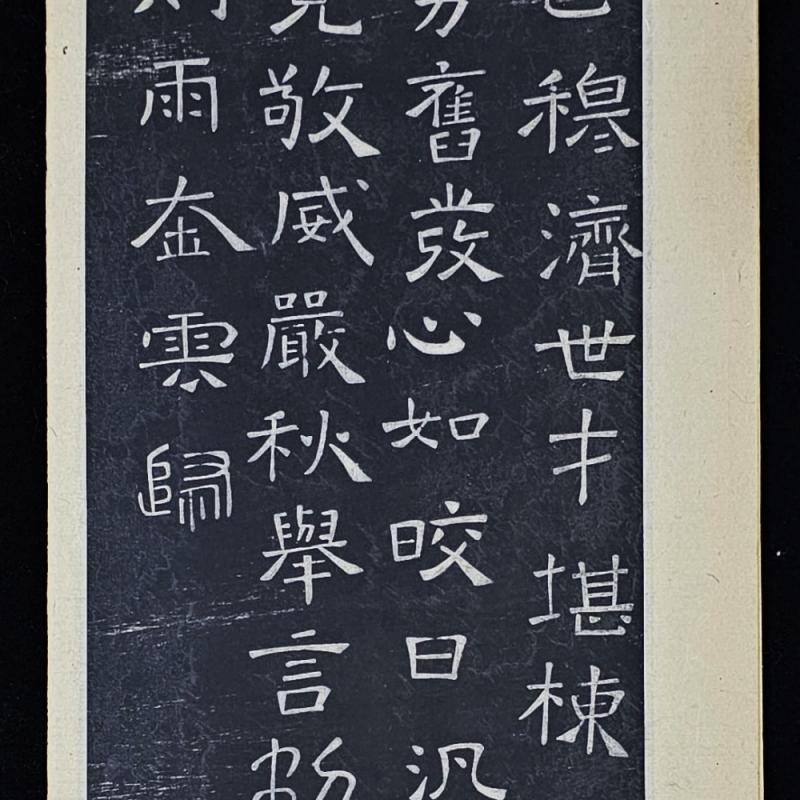 穆濟世才堪棟
舊發心如皎日汎
敬威嚴秋舉言
雨雲歸